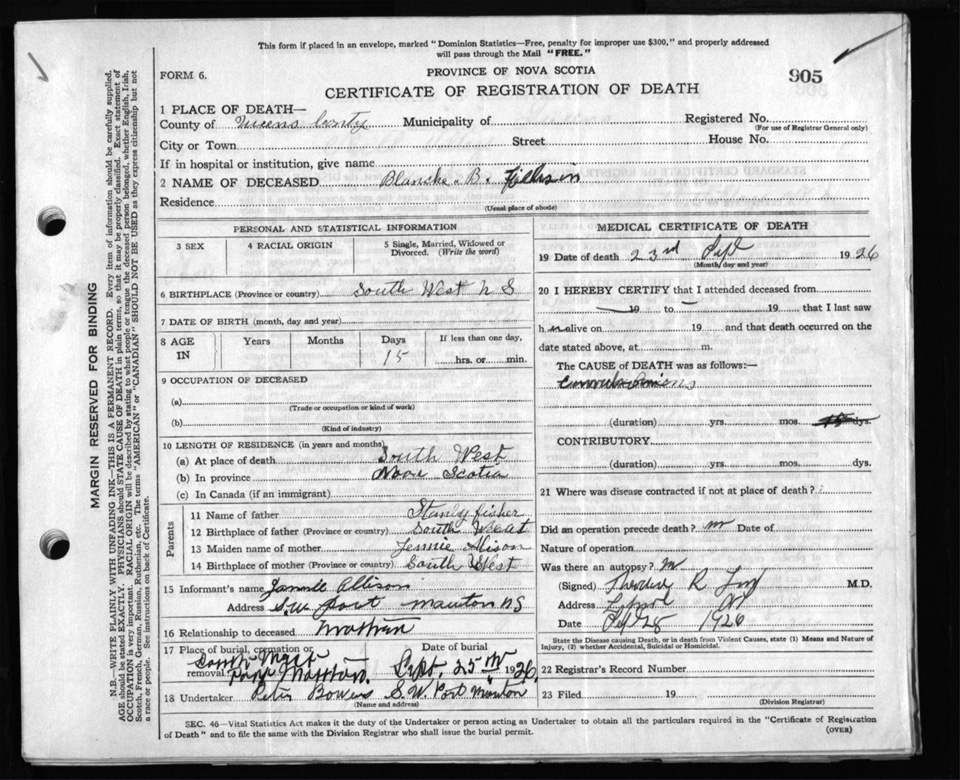 This form if placed in an envelope, marked "Dominion Statistics—Free, penalty for improper use $300," and properly addressed
will pass through the Mail "FREE."
FORM 6.
PROVINCE OF NOVA SCOTIA
905
CERTIFICATE OF REGISTRATION OF DEATH
1 PLACE OF DEATH—
County of Queens Conty Municipality of
Registered No.
(For use of Registrar General only)
City or Town Street House No.
If in hospital or institution, give name
2 NAME OF DECEASED Blanche B.
Residence
(Usual place of abode)
PERSONAL AND STATISTICAL INFORMATION
3 SEX
4 RACIAL ORIGIN
5 Single, Married, Widowed or
Divorced. (Write the word)
6 BIRTHPLACE (Province or country) South West N S
7 DATE OF BIRTH (month, day and year)
8 AGE
IN
Years Months Days
15
If less than one day,
hrs. or min.
9 OCCUPATION OF DECEASED
(a)
(Trade or occupation or kind of work)
(b)
(Kind of industry)
10 LENGTH OF RESIDENCE (in years and months)
(a) At place of death South West
(b) In province Nova Scotia
(c) In Canada (if an immigrant)
Parents
11 Name of father Stanly Fisher
12 Birthplace of father (Province or country) South West
13 Maiden name of mother Jennie
14 Birthplace of mother (Province or country) South West
15 Informant's name Allison
Address S.W. Port Mouton NS
16 Relationship to deceased
17 Place of burial, cremation or
removal South West
Port Mouton.
Date of burial
Sept. 25th 1926
18 Undertaker Peter Bowers S.W. Port Mouton
(Name and address)
MEDICAL CERTIFICATE OF DEATH
19 Date of death 23rd Sept 1926
(Month, day and year)
20 I HEREBY CERTIFY that I attended deceased from
19 to 19 that I last saw
h er alive on 19 and that death occurred on the
date stated above, at m.
The CAUSE of DEATH was as follows:—
(duration) yrs. mos. dys.
CONTRIBUTORY
(duration) yrs. mos. dys.
21 Where was disease contracted if not at place of death?
Did an operation precede death? Date of
Nature of operation
Was there an autopsy?
(Signed) Theodore R M.D.
Address
Date Sept 28 1926
State the Disease causing Death, or in death from Violent Causes, state (1) Means and Nature of
Injury, (2) whether Accidental, Suicidal or Homicidal.
22 Registrar's Record Number
23 Filed 19
(Division Registrar)
SEC. 46—Vital Statistics Act makes it the duty of the Undertaker or person acting as Undertaker to obtain all the particulars required in the "Certificate of Registration
of Death" and to file the same with the Division Registrar who shall issue the burial permit.
(OVER)
MARGIN RESERVED FOR BINDING
N.B.—WRITE PLAINLY WITH UNFADING INK—THIS IS A PERMANENT RECORD. Every item of information should be carefully supplied.
AGE should be stated EXACTLY. PHYSICIANS should STATE CAUSE OF DEATH in plain terms, so that it may be properly classified. Exact statement of
OCCUPATION is very important. RACIAL ORIGIN will be described by stating to what people or tongue the deceased person belonged, whether English, Irish,
Scotch, French, German, Russian, Ruthenian, etc. The terms "AMERICAN" or "CANADIAN" SHOULD NOT BE USED as they express citizenship but not
a race or people. See instructions on back of Certificate.